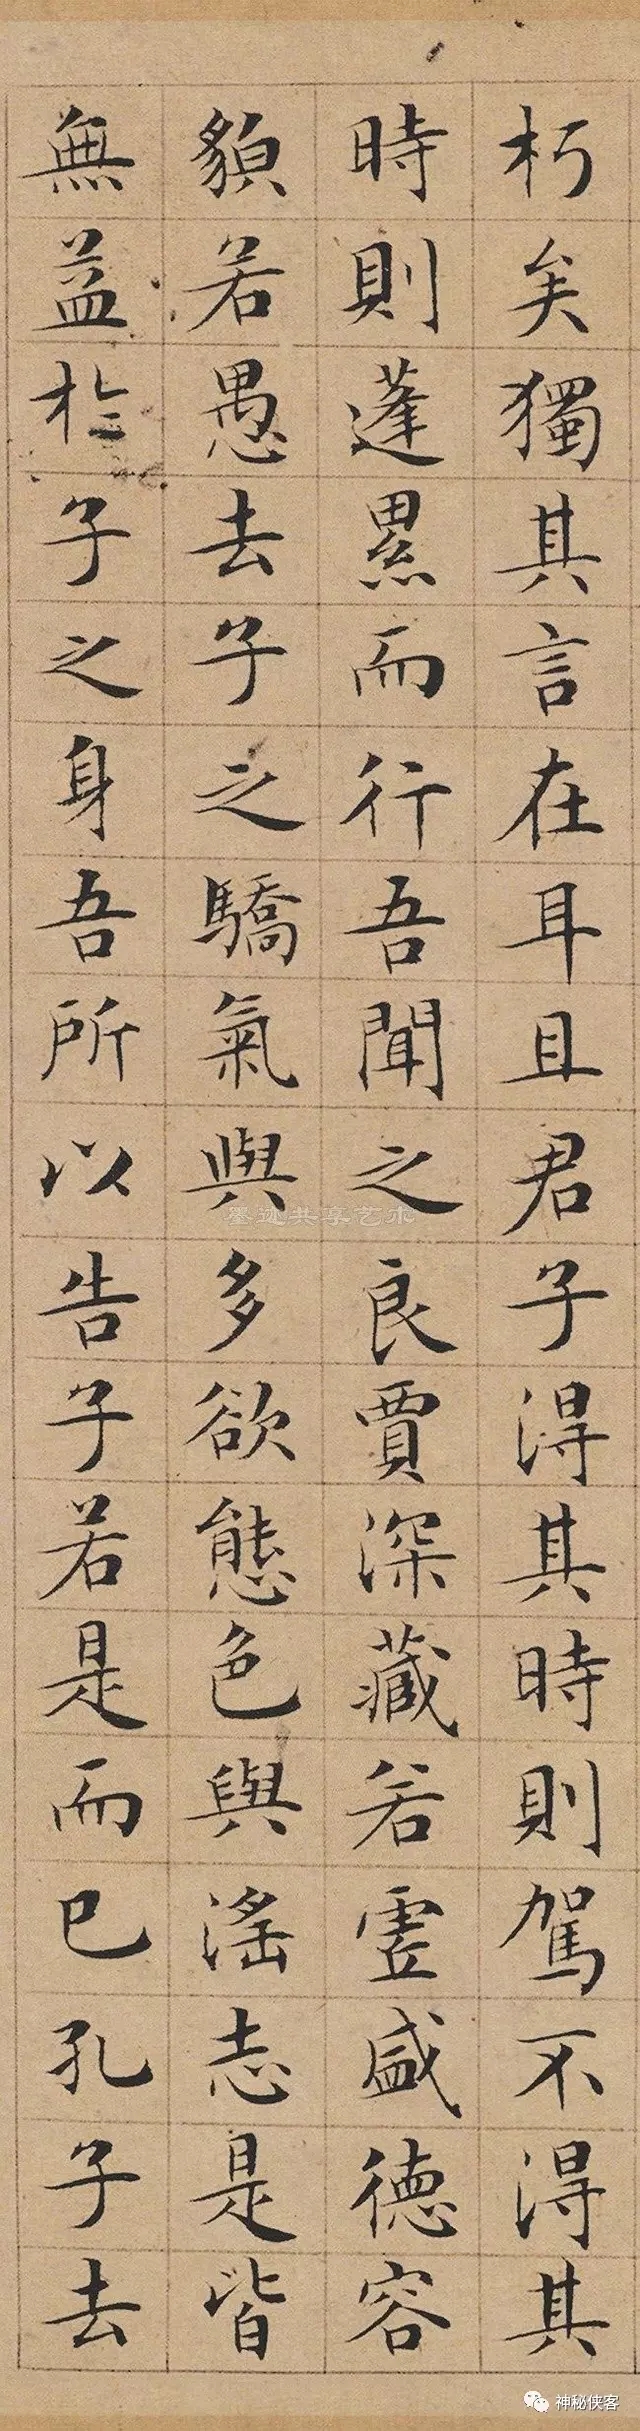 朽矣獨其言在耳且君子淂其時則駕不淂其
時則蓬累而行吾聞之良賈深藏若虛盛德容
貌若愚去子之驕氣與多欲態色與淫志是皆
無益於子之身吾所以告子若是而已孔子去
墨迹共享艺术
神秘侠客